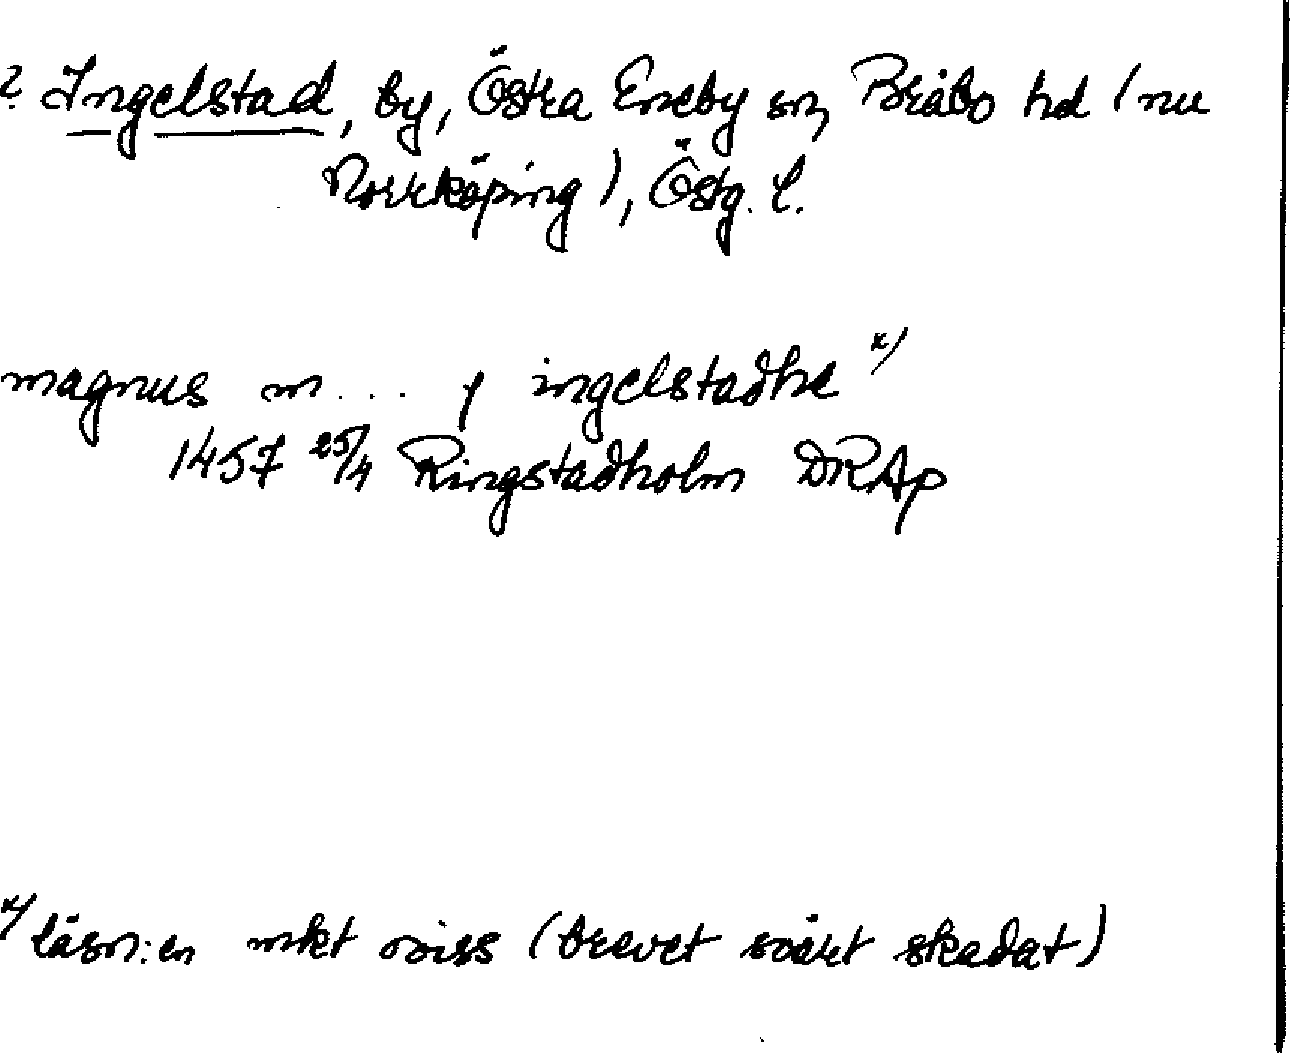 ? Ingelstad, by, Östra Eneby sn, Bråbo hd (nu
Norrköping), Östg. l.
magnus m... j ingelstadhe x)
1457 25/4 Ringstadholm DRAp
x) läsn:en mkt oviss (brevet svårt skadat)